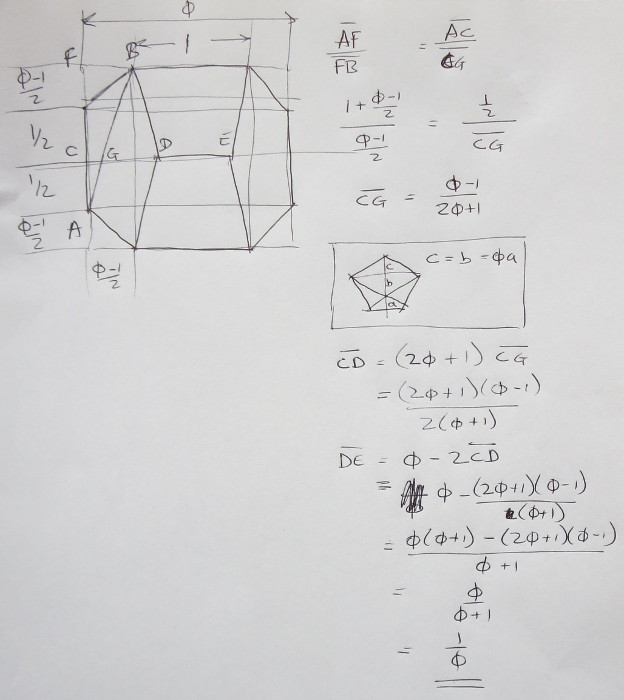 ϕ
F B 1
ϕ-1
2
1/2
C G D E
1/2
ϕ-1
2
A
ϕ-1
2
AF/FB = AC/CG
(1 + (ϕ-1)/2)/((ϕ-1)/2) = (1/2)/CG
CG = (ϕ-1)/(2ϕ+1)
c
b
a
c = b = ϕa
CD = (2ϕ+1) CG
= (2ϕ+1)(ϕ-1)/2(ϕ+1)
DE = ϕ - 2CD
= ϕ - (2ϕ+1)(ϕ-1)/(ϕ+1)
= (ϕ(ϕ+1) - (2ϕ+1)(ϕ-1))/(ϕ+1)
= ϕ/(ϕ+1)
= 1/ϕ